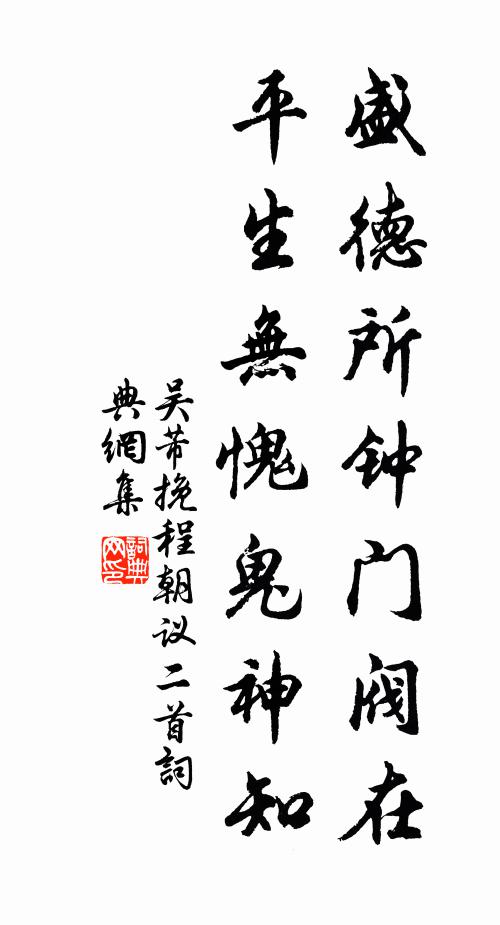 盛德所钟门阀在
平生無愧鬼神知
吴芾挽程朝议二首詞
典網集
詞典
网印